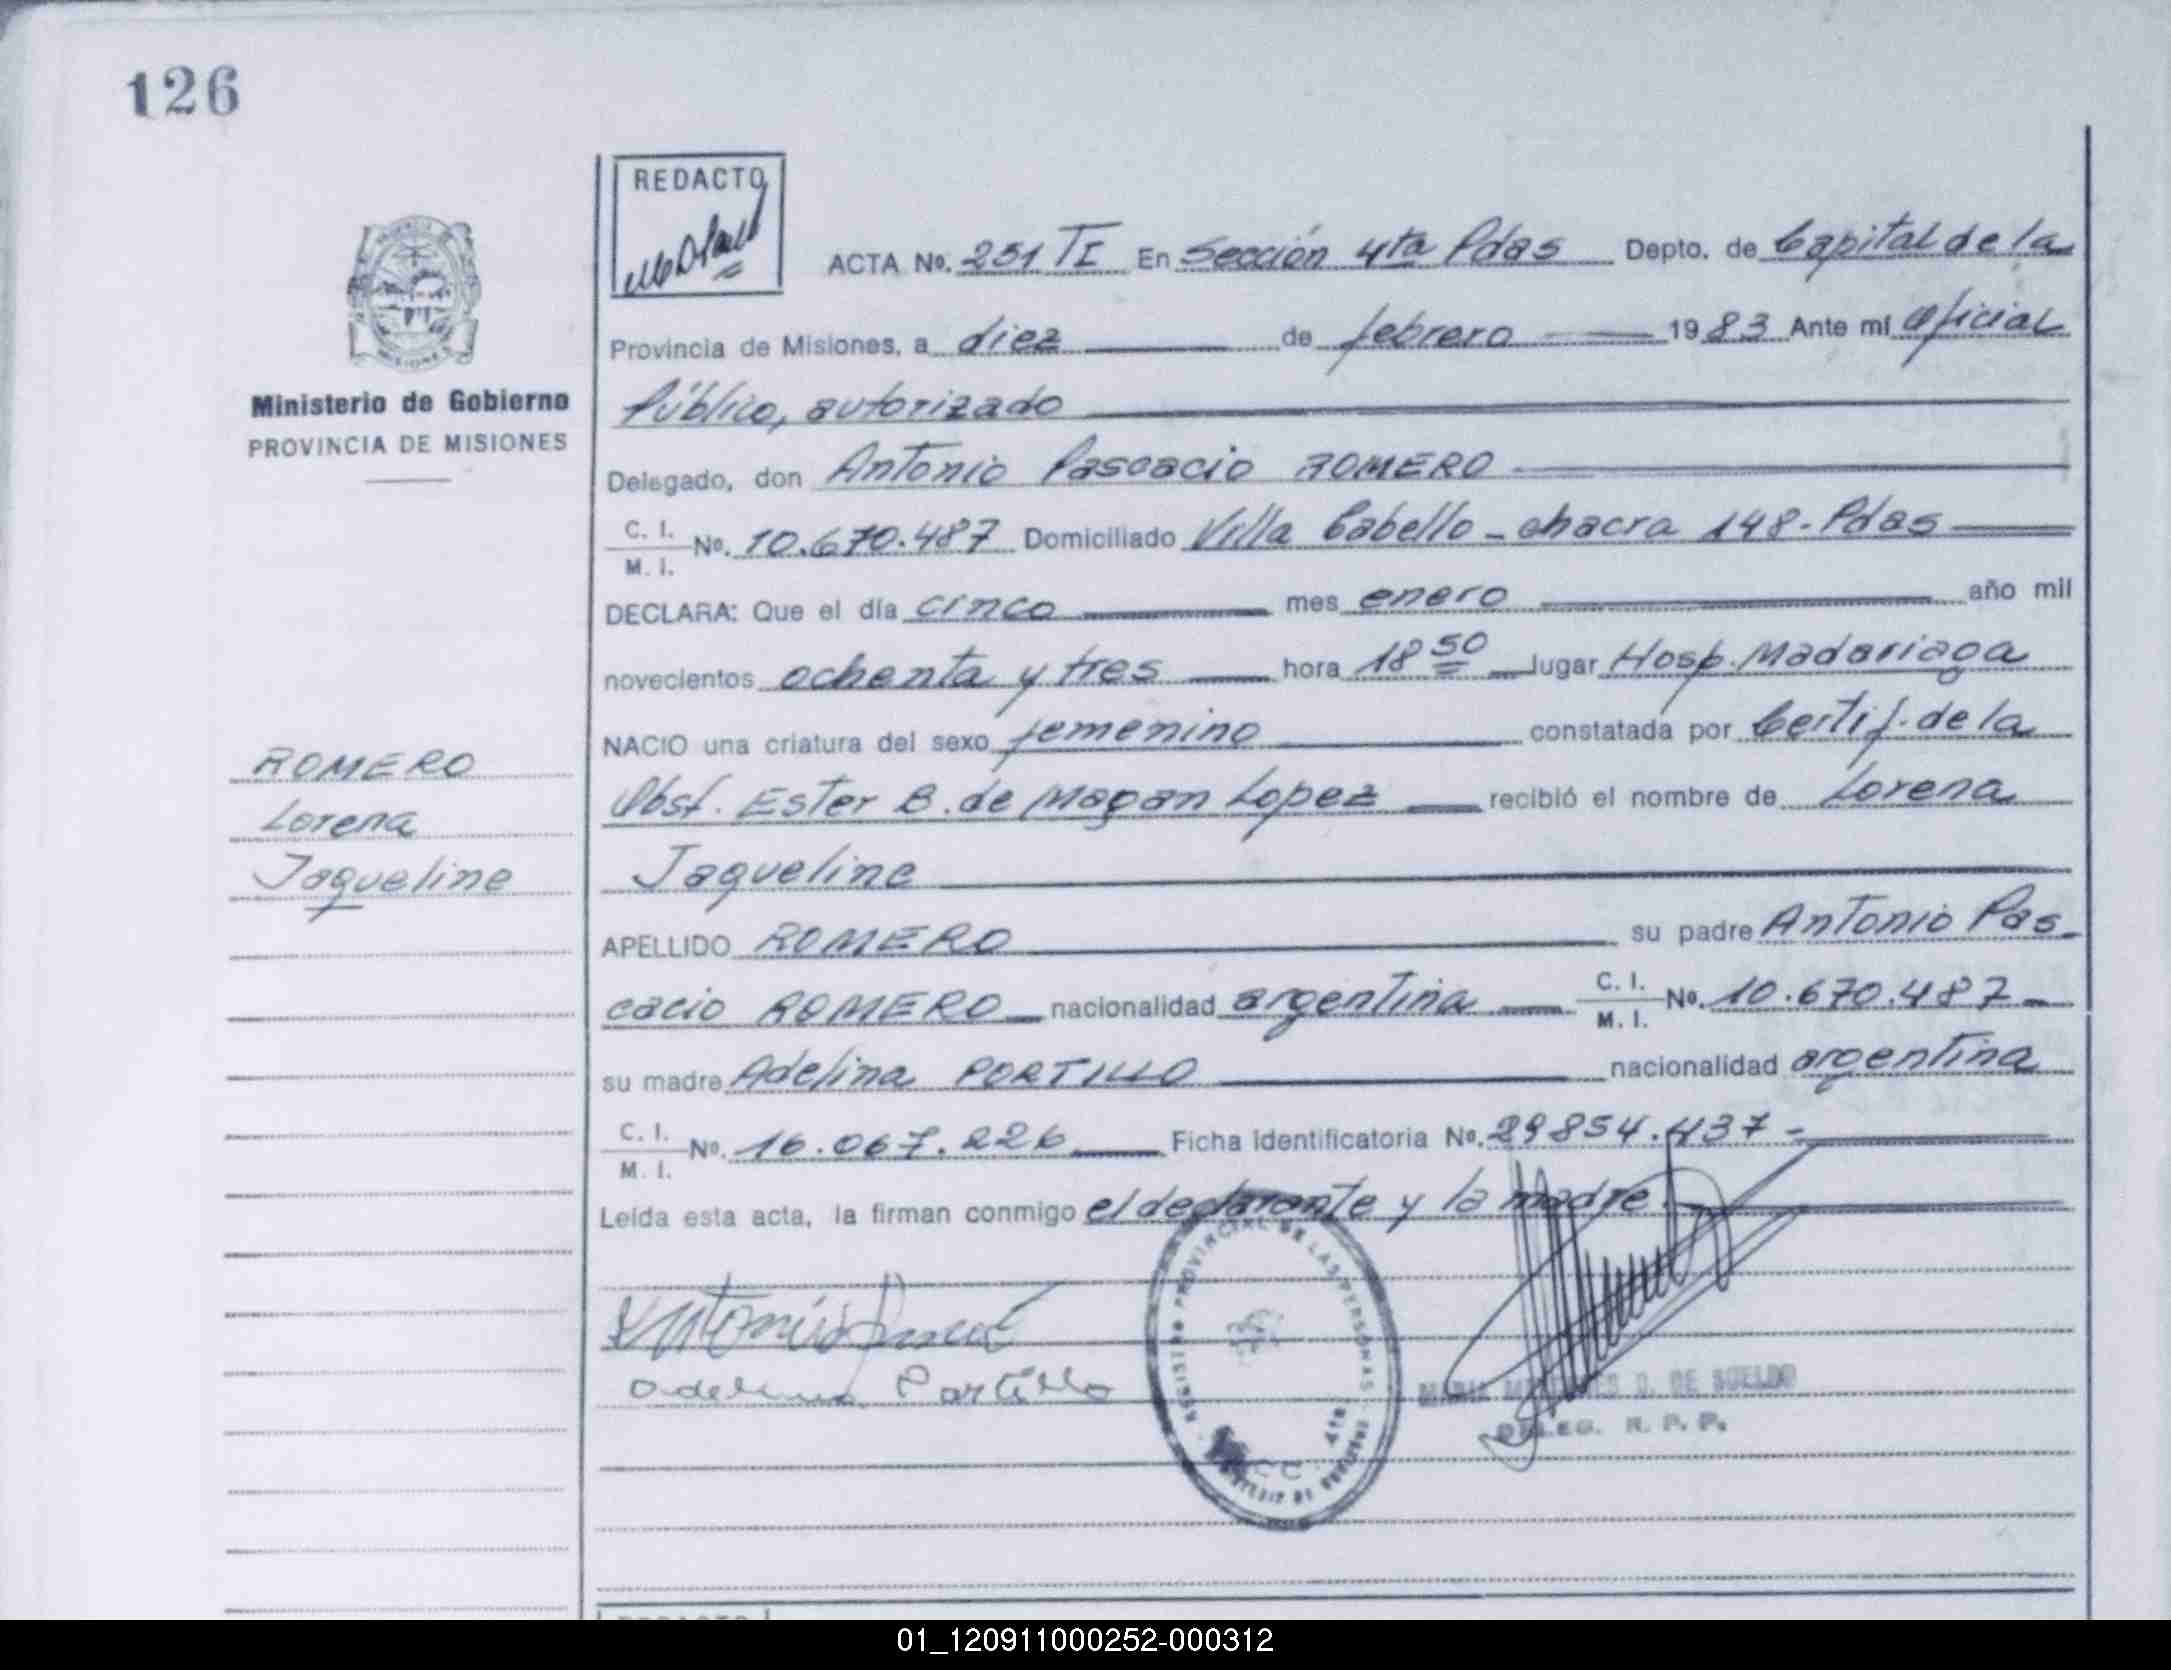 126
REDACTO
ACTA No. 251 TI En Sección 4ta Pdas Depto. de Capital de la
Provincia de Misiones, a diez de febrero 1983 Ante mí Oficial
Público, autorizado
Delegado, don Antonio Pascacio ROMERO
C. I.
M. I.
No. 10.670.487 Domiciliado Villa Cabello - chacra 148 - Pdas
DECLARA: Que el día cinco mes enero año mil
novecientos ochenta y tres hora 18 50 lugar Hosp. Madariaga
NACIO una criatura del sexo femenino constatada por Certif. de la
Obst. Ester B. de Magan Lopez recibió el nombre de Lorena
Jaqueline
APELLIDO ROMERO su padre Antonio Pas-
cacio ROMERO nacionalidad argentina C. I. M. I. No. 10.670.487
su madre Adelina PORTILLO nacionalidad argentina
C. I.
M. I.
No. 16.067.226 Ficha identificatoria No. 29854.437-
Leída esta acta, la firman conmigo el declarante y la madre.
Ministerio de Gobierno
PROVINCIA DE MISIONES
ROMERO
Lorena
Jaqueline
Portillo
REGISTRO PROVINCIAL DE LAS PERSONAS
MARIA D. DE SUELDO
DELEG. R. P. P.
01_120911000252-000312